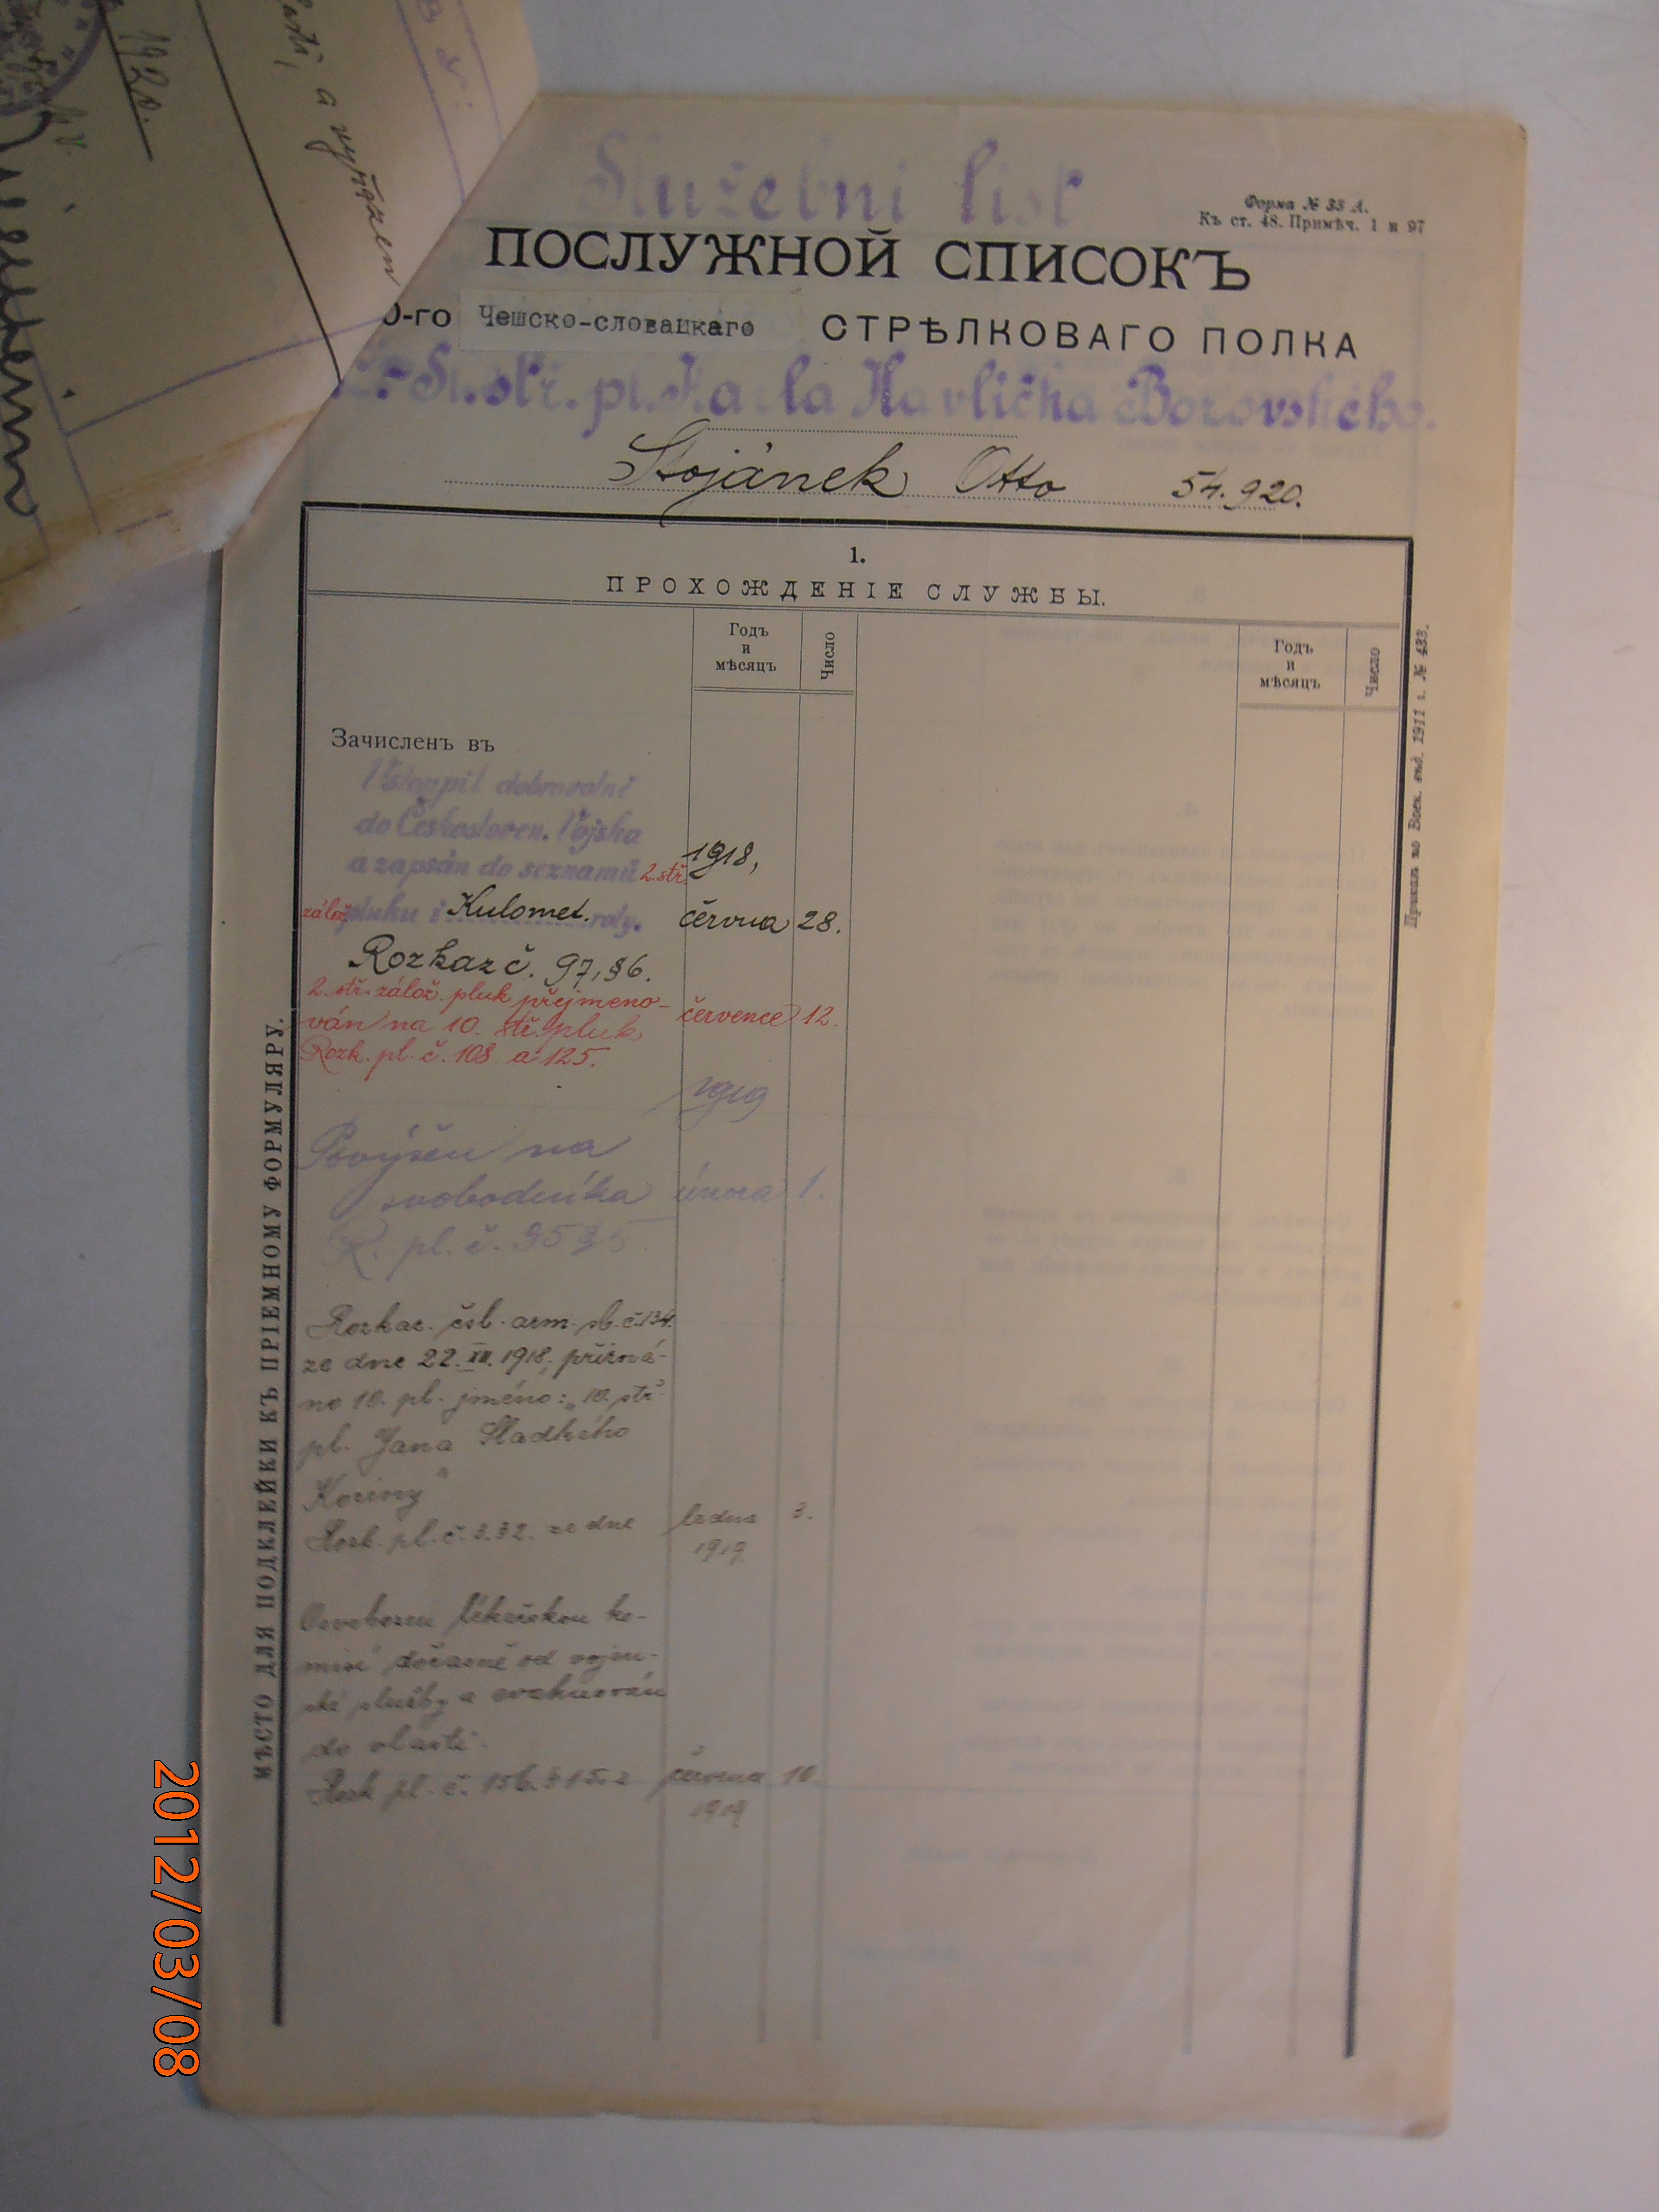 B V:
1920.
lasti, a vyřazen
Služební list
Форма № 33 А.
Къ ст. 48. Примѣч. 1 и 97
ПОСЛУЖНОЙ СПИСОКЪ
0-го Чешско-словацкаго СТРѢЛКОВАГО ПОЛКА
Č.-Sl. stř. pl. Karla Havlíčka Borovského.
Stojánek Otto 54.920.
1.
ПРОХОЖДЕНІЕ СЛУЖБЫ.
Годъ и мѣсяцъ
Число
Годъ и мѣсяцъ
Число
Зачисленъ въ
Vstoupil dobrovolně
do Českosloven. Vojska
a zapsán do seznamů 2. stř. 1918,
zálož. pluku i Kulomet. roty. června 28.
Rozkaz č. 97, §6.
2. stř. zálož. pluk přejmeno-
ván na 10. stř. pluk července 12.
Rozk. pl. č. 108 a 125.
1919
Povýšen na
svobodníka února 1.
R. pl. č. 35 § 5.
Rozkaz. čsl. arm. sb. č. 134.
ze dne 22. XII. 1918, přizná-
no 10. pl. jméno: „10. stř.
pl. Jana Sladkého
Koziny"
Rozk. pl. č. 3. § 2. ze dne ledna 3.
1919
Osvobozen lékařskou ko-
misí dočasně od vojen-
ské služby a evakuován
do vlasti.
Rozk pl. č. 156. § 15. 2 června 10.
1919
МѢСТО ДЛЯ ПОДКЛЕЙКИ КЪ ПРІЕМНОМУ ФОРМУЛЯРУ.
Приказъ по Воен. вѣд. 1911 г. № 433.
2012/03/08